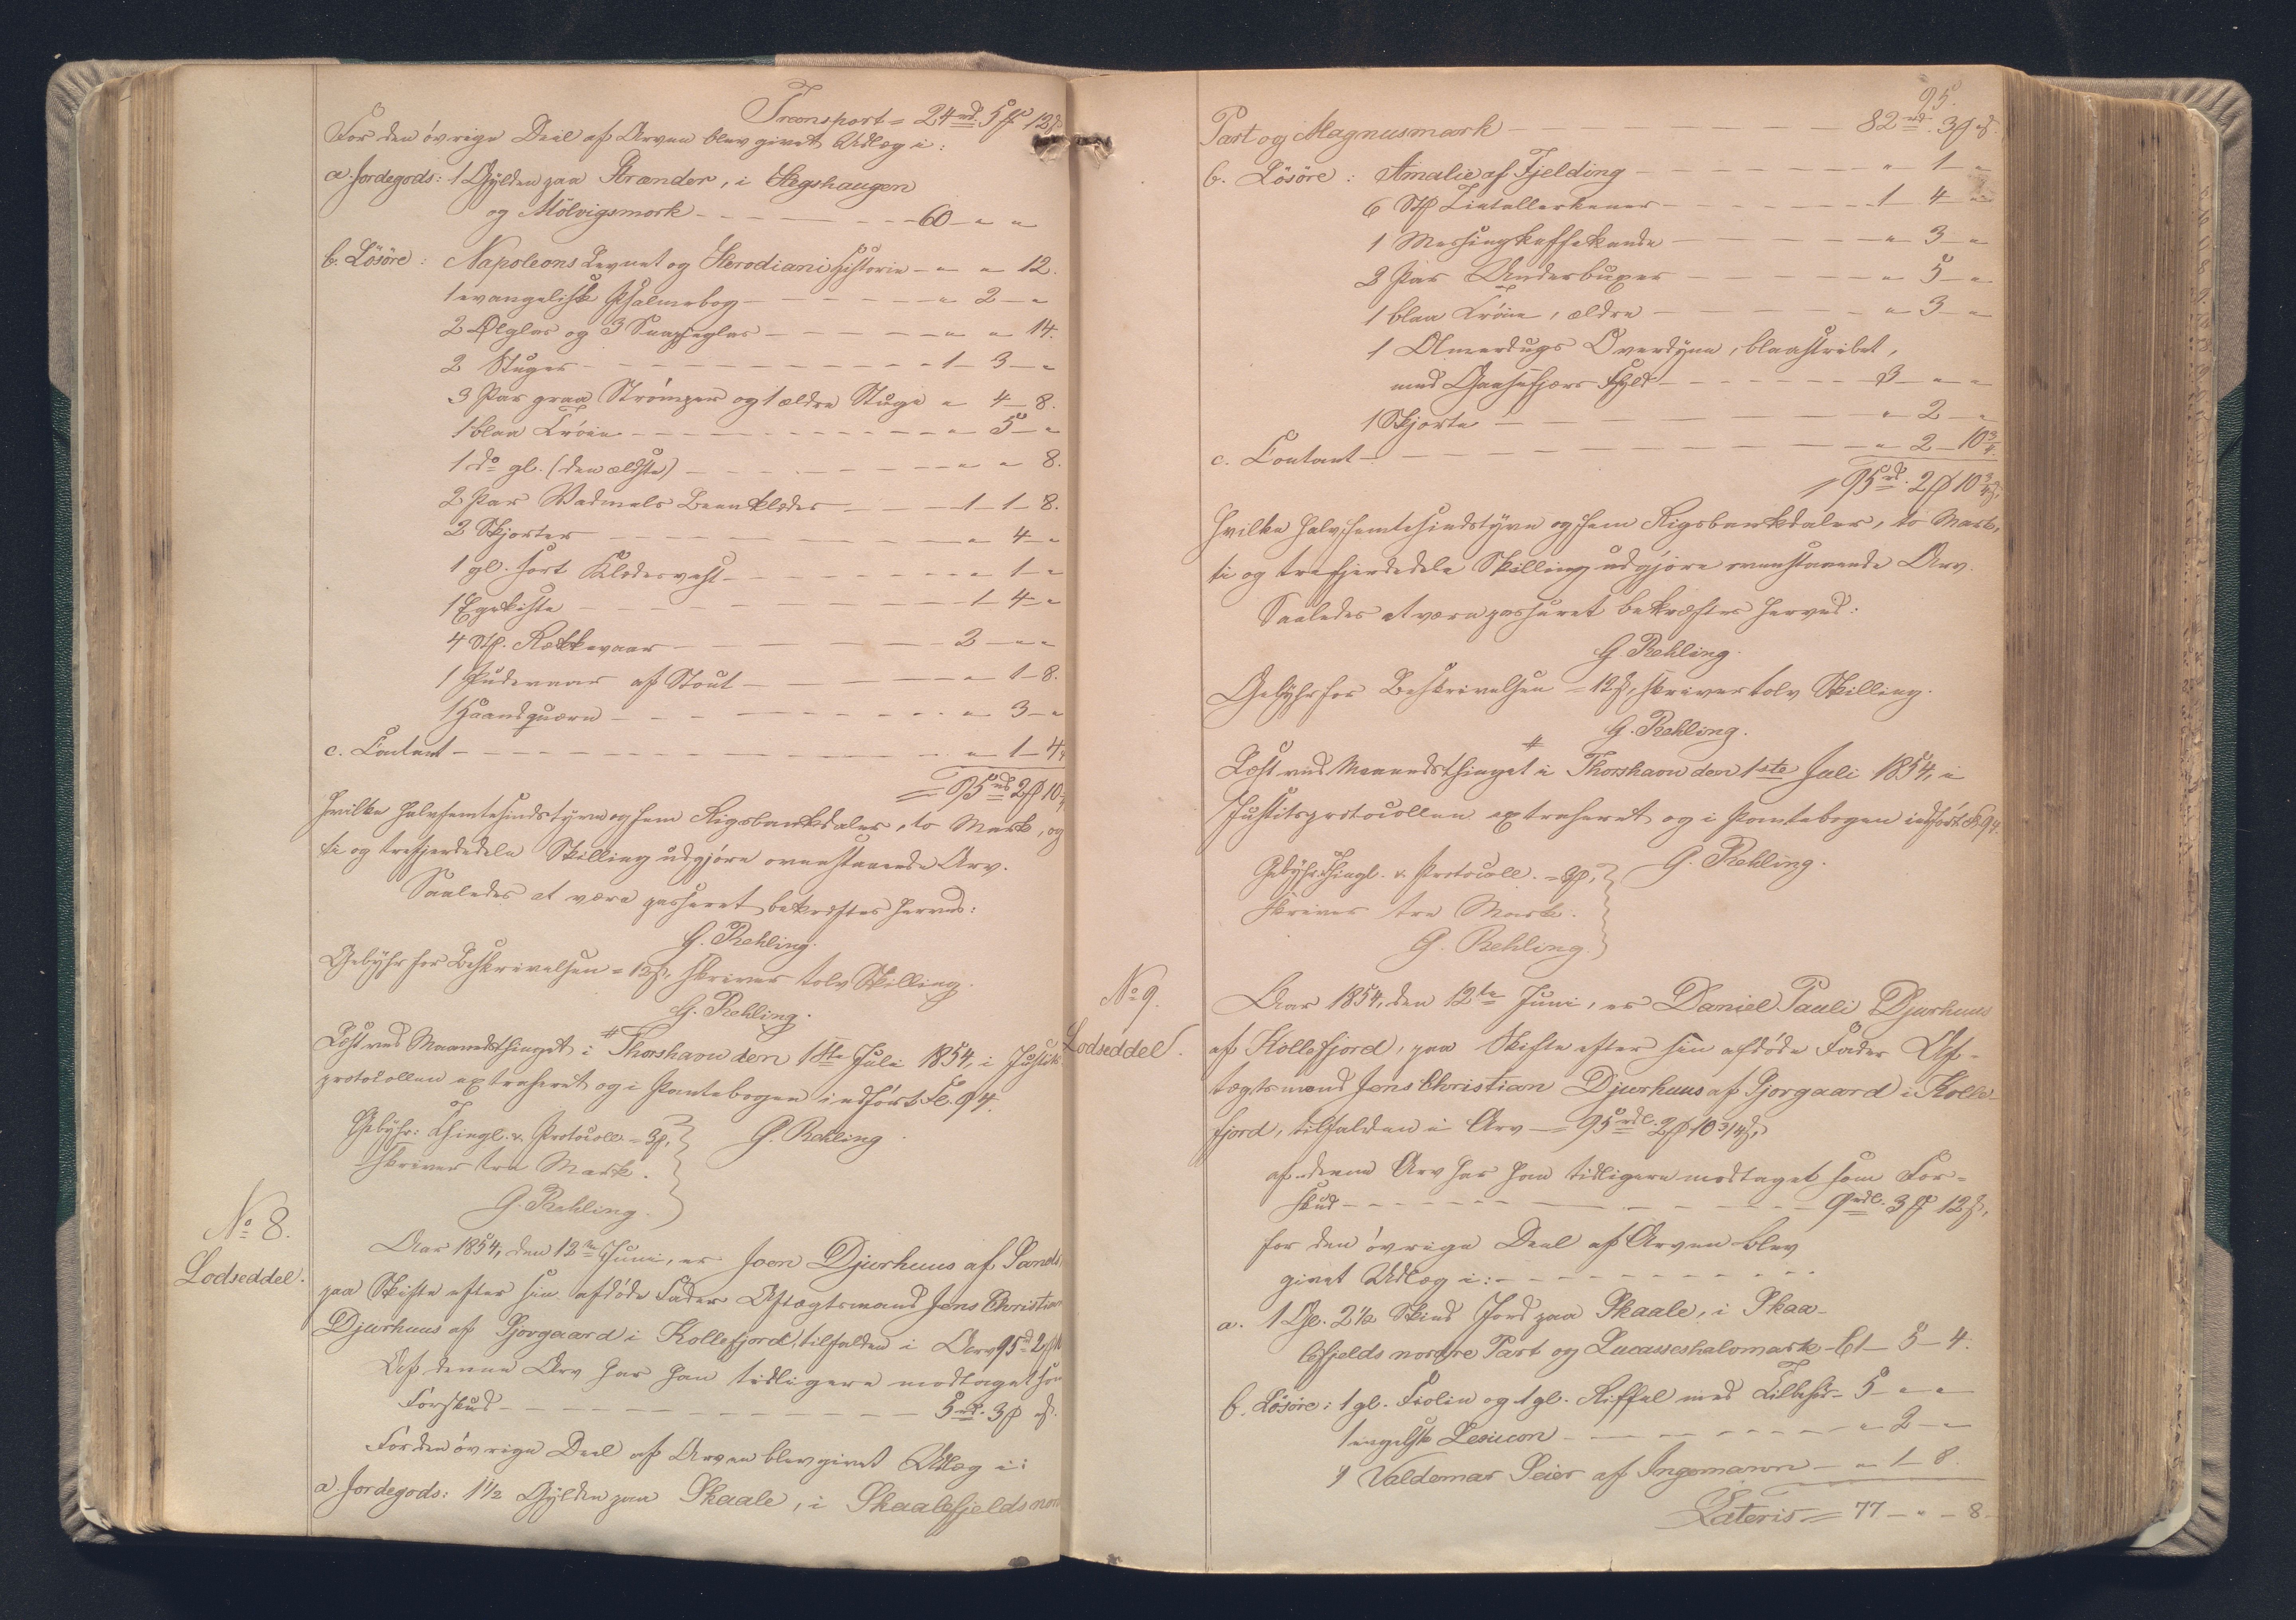 Transport = 24 rd. 5 ƒ 12 ß
For den øvrige Deel af Arven blev givet Udlæg i:
a. Jordegods: 1 Gylden paa Strænder, i Stegshaugen
og Mølvigsmork - - - 60 - " "
b. Løsöre: Napoleons Levnet og Herodiani Historie - " " 12.
1 evangelisk Psalmebog - - - " 2 - "
2 Ølglas og 3 Snapseglas - - - " " 14.
2 Stuger - - - 1 - 3 - "
3 Par graa Strømper og 1 ældre Stuge " 4 - 8.
1 blaa Trøie - - - " 5 - "
1 do gl. (den ældste) - - - " " 8.
2 Par Vadmels Beenklæder - - - 1 - 1 - 8.
2 Skjorter - - - " 4 - "
1 gl. sort Klædesvest - - - " 1 - "
1 Egekiste - - - 1 - 4 - "
4 Stk. Rækkevaar - - - 2 - " "
1 Pudevaar af Stout - - - " 1 - 8.
1 Haandquærn - - - " 3 - "
c. Contant - - - " 1 - 4
= 95 rd 2 ƒ 10
Hvilke halvfemtesindstyve og fem Rigsbankdaler, to Mark, og
ti og trefjerdedele Skilling udgjøre ovenstaaende Arv.
Saaledes at være passeret bekræftes herved:
G. Rehling.
Gebyhr for Beskrivelsen = 12 ß, skriver tolv Skilling.
G. Rehling.
Læst ved Maanedsthinget i Thorshavn den 1ste Juli 1854, i Justits
protocollen extraheret og i Pantebogen indført Fo. 94.
Gebyhr: Thingl. & Protocoll = 3 ƒ,
skriver tre Mark.
G. Rehling.
G. Rehling.
No 8.
Lodseddel.
Aar 1854, den 12te Juni, er Joen Djurhuus af Sand,
paa Skifte efter sin afdøde Fader Aftægtsmand Jens Christian
Djurhuus af Gjorgaard i Kollefjord, tilfalden i Arv 95 rd 2 ƒ 10
Af denne Arv har han tidligere modtaget som
Forskud - - - 5 rd. 3 ƒ " ß.
For den øvrige Deel af Arven blev givet Udlæg i:
a. Jordegods: 1 1/2 Gylden paa Skaale, i Skaalefjelds nor
95.
Part og Magnusmark - - - 82 rd. 3 ƒ " ß.
b. Løsöre: Amalie af Fjelding - - - " 1 - "
6 Stk Tintallerkener - - - 1 4 "
1 Messingkaffekande - - - " 3 - "
2 Par Underbuxer - - - " 5 - "
1 blaa Trøie, ældre - - - " 3 - "
1 Olmerdugs Overdyne, blaastribet,
med Gaasefjær Fyld - - - 3 - " - "
1 Skjorte - - - " 2 - "
c. Contant - - - " 2 - 10 3/4.
95 rd. 2 ƒ 10 3/4 ß.
Hvilke halvfemtesindstyve og fem Rigsbankdaler, to Mark,
ti og trefjerdedele Skilling udgjøre ovenstaaende Arv.
Saaledes at være passeret bekræftes herved:
G. Rehling.
Gebyhr for Beskrivelsen = 12 ß, skriver tolv Skilling.
G. Rehling.
Læst ved Maanedsthinget i Thorshavn den 1ste Juli 1854, i
Justitsprotocollen extraheret og i Pantebogen indført Fo 94.
Gebyhr: Thingl. & Protocoll. = 3 ƒ,
skriver tre Mark.
G. Rehling.
G. Rehling.
No 9.
Lodseddel.
Aar 1854, den 12te Juni, er Daniel Pauli Djurhuus
af Kollefjord, paa Skifte efter sin afdøde Fader Af-
tægtsmand Jens Christian Djurhuus af Gjorgaard i Kolle-
fjord, tilfalden i Arv - = 95 rdl. 2 ƒ 10 3/4 ß,
af denne Arv har han tidligere modtaget som For-
skud - - - 9 rdl. 3 ƒ 12 ß,
for den øvrige Deel af Arven blev
givet Udlæg i: - - -
a. 1 Gl. 2 1/2 Skind Jord paa Skaale, i Skaa-
lefjelds nordre Part og Lucasseshalomark - 61 - 5 - 4.
b. Løsöre: 1 gl. Fiolin og 1 gl. Riffel med Tilbehør - 5 - " "
1 engelsk Lexicon - - - " 2 - "
1 Valdemar Seier af Ingemann - " 1 - 8.
Lateris = 77 - " - 8.